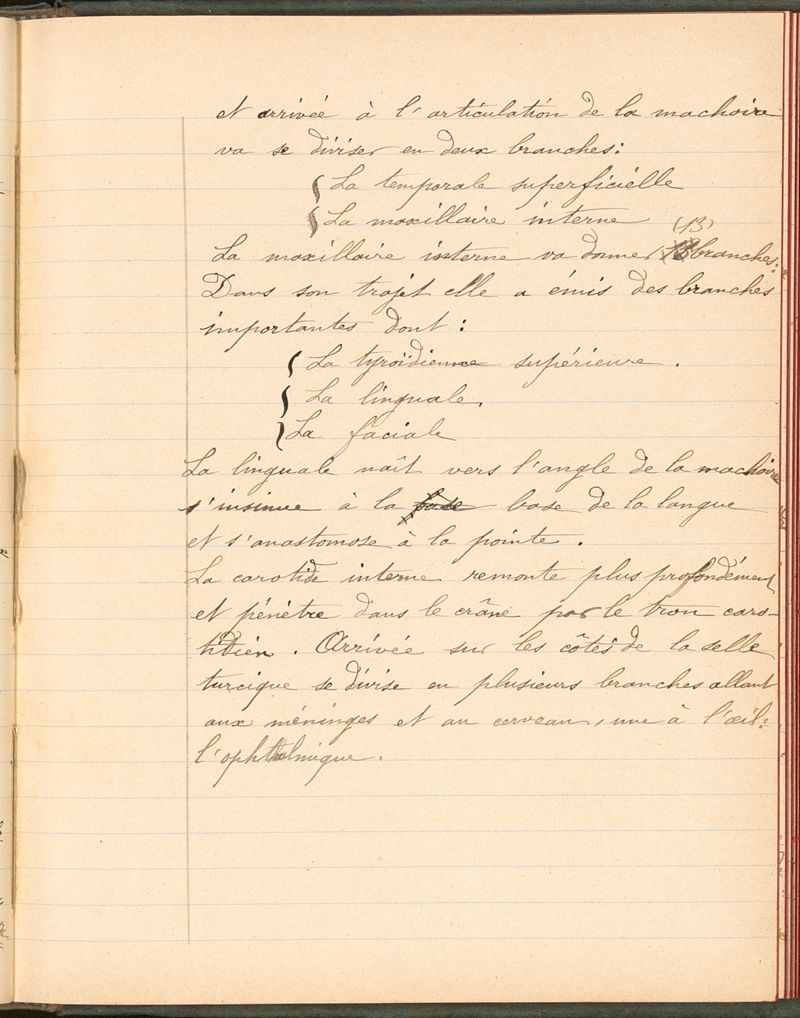 et arrivée à l'articulation de la machoire
va se diviser en deux branches:
{ La temporale superficielle
{ La maxillaire interne
(13)
La maxillaire interne va donner branches:
Dans son trajet elle a émis des branches
importantes dont :
{ La tyroïdienne supérieure .
{ La linguale.
{ La faciale
La linguale naît vers l'angle de la machoire
s'insinue à la base base de la langue
et s'anastomose à la pointe .
La carotide interne remonte plus profondément
et pénètre dans le crâne par le tron caro-
tidien . Arrivée sur les côtés de la selle
turcique se divise en plusieurs branches allant
aux méninges et au cerveau, une à l'œil:
l'ophtalmique.